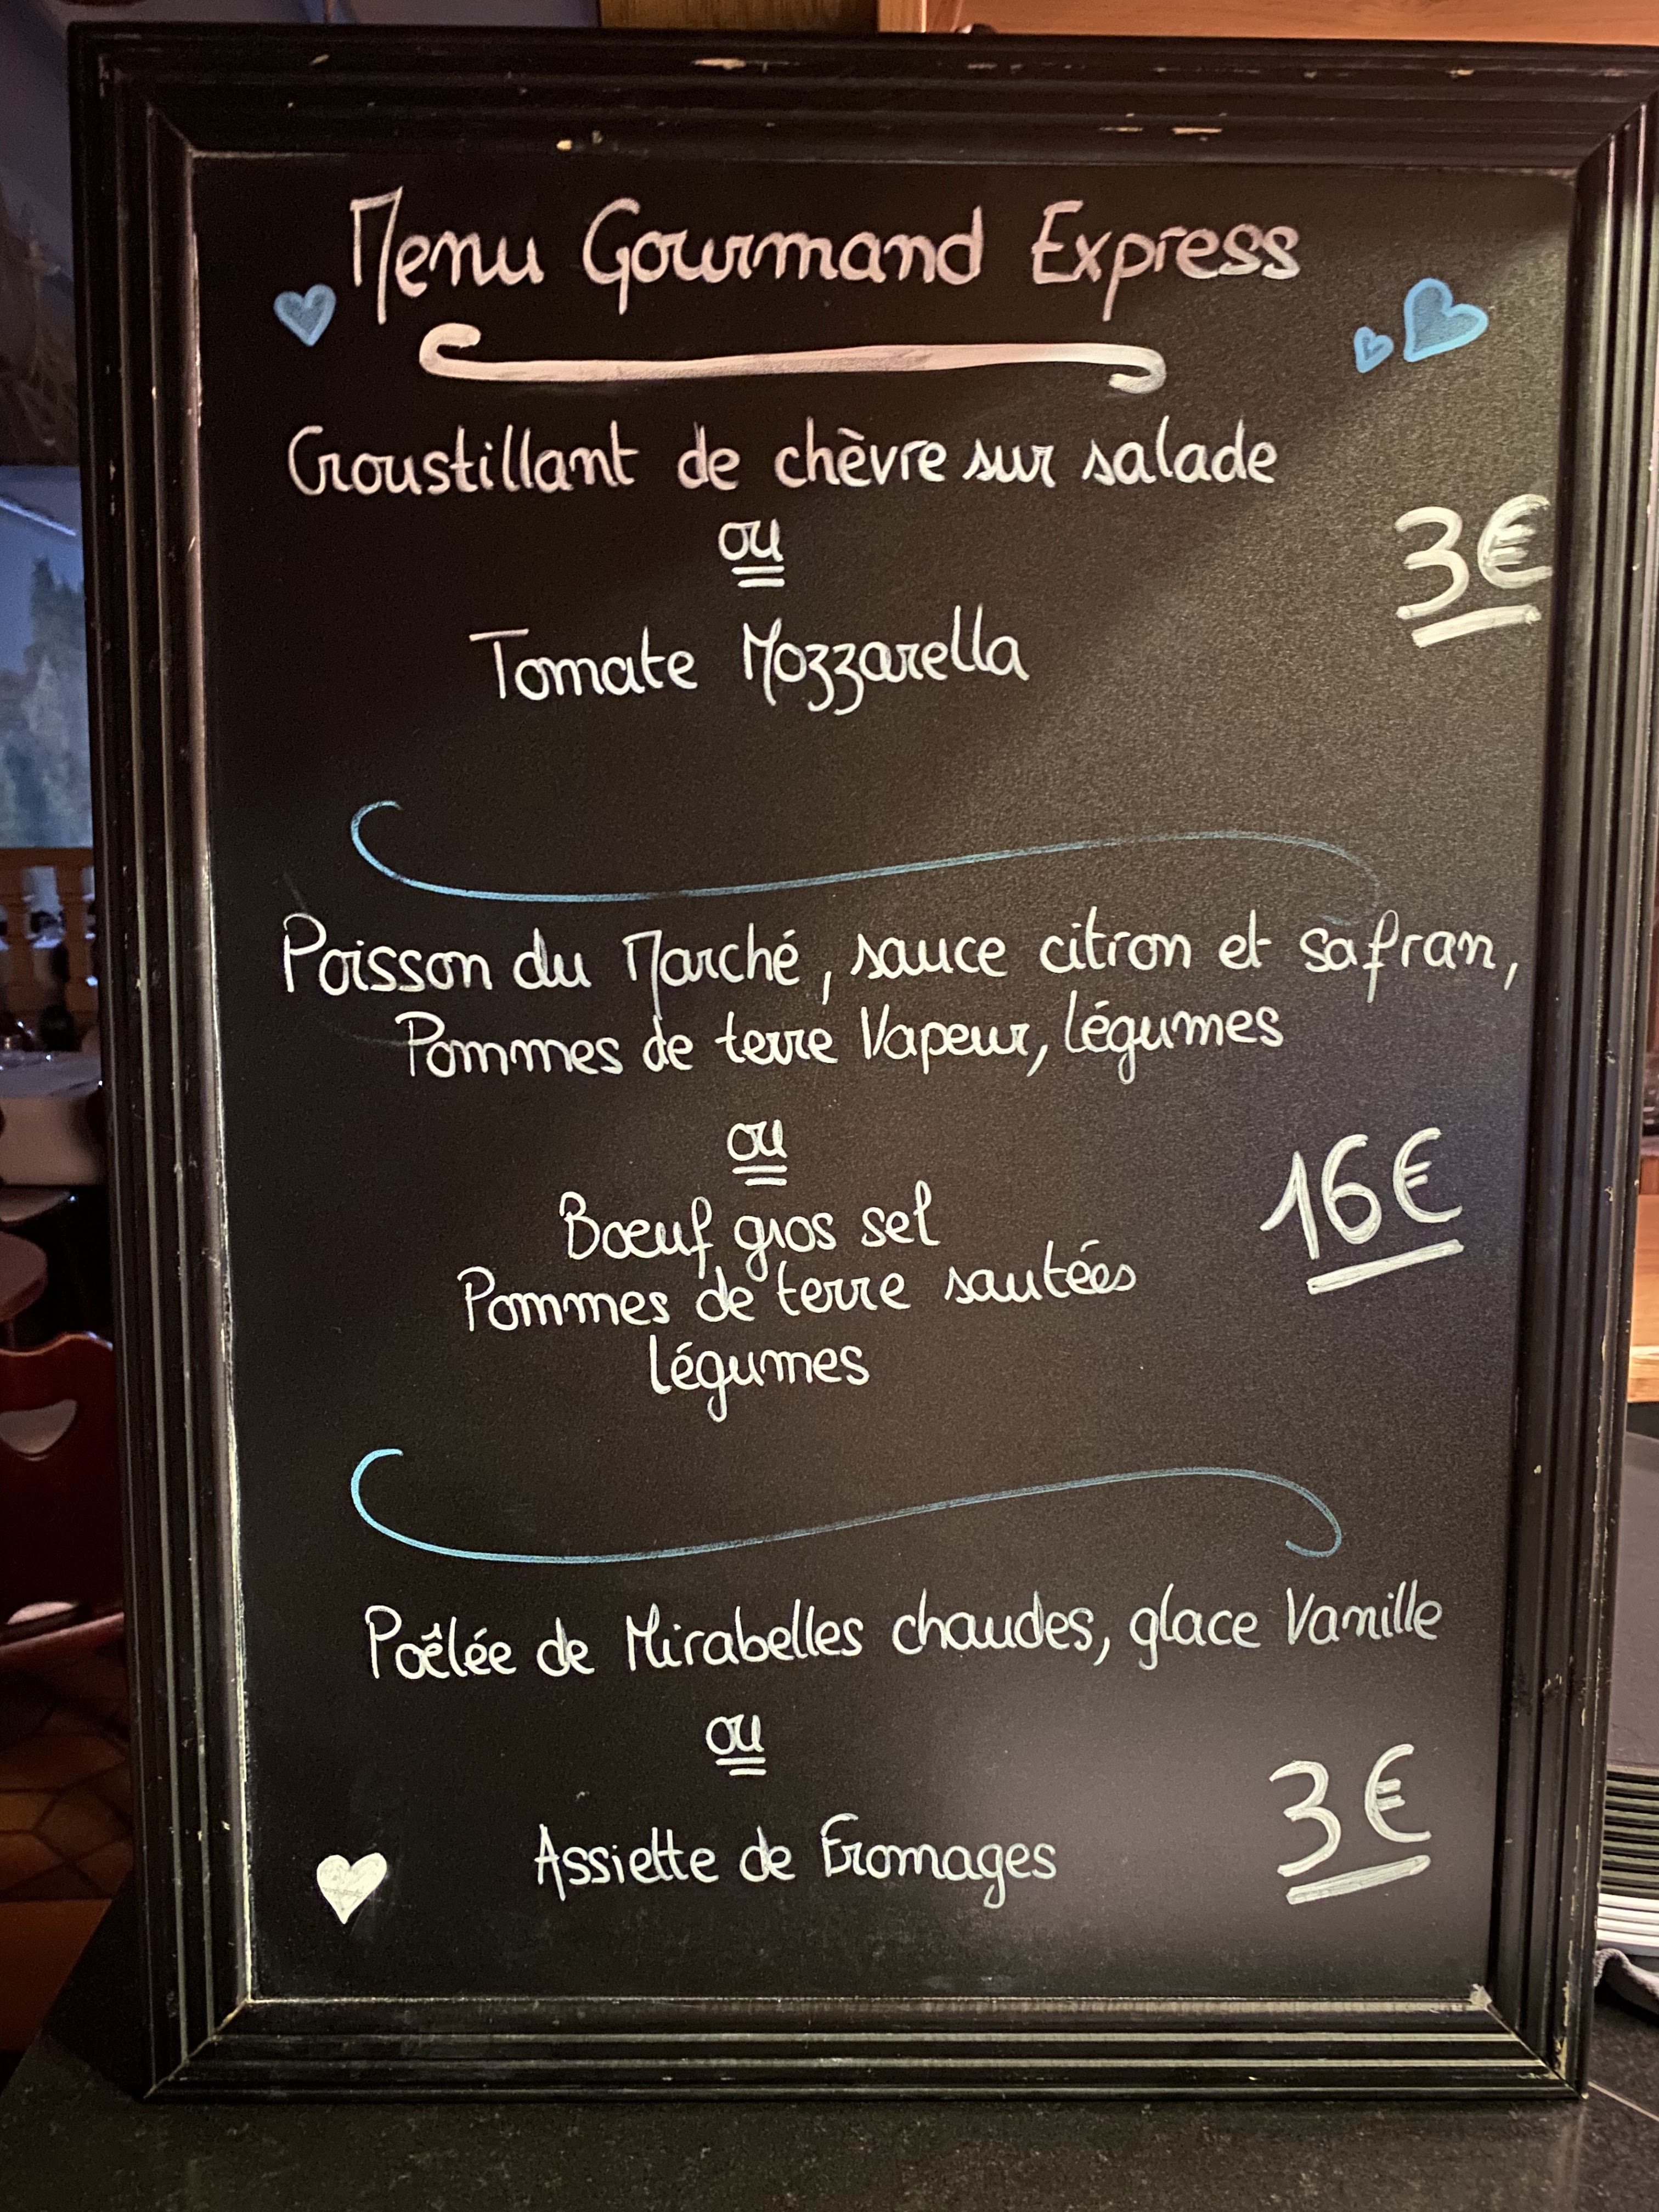 Menu Gourmand Express
Croustillant de chèvre sur salade
ou
3€
Tomate Mozzarella
Poisson du Marché, sauce citron et safran,
Pommes de terre Vapeur, légumes
ou
16€
Bœuf gros sel
Pommes de terre sautées
légumes
Poêlée de Mirabelles chaudes, glace Vanille
ou
3€
Assiette de Fromages